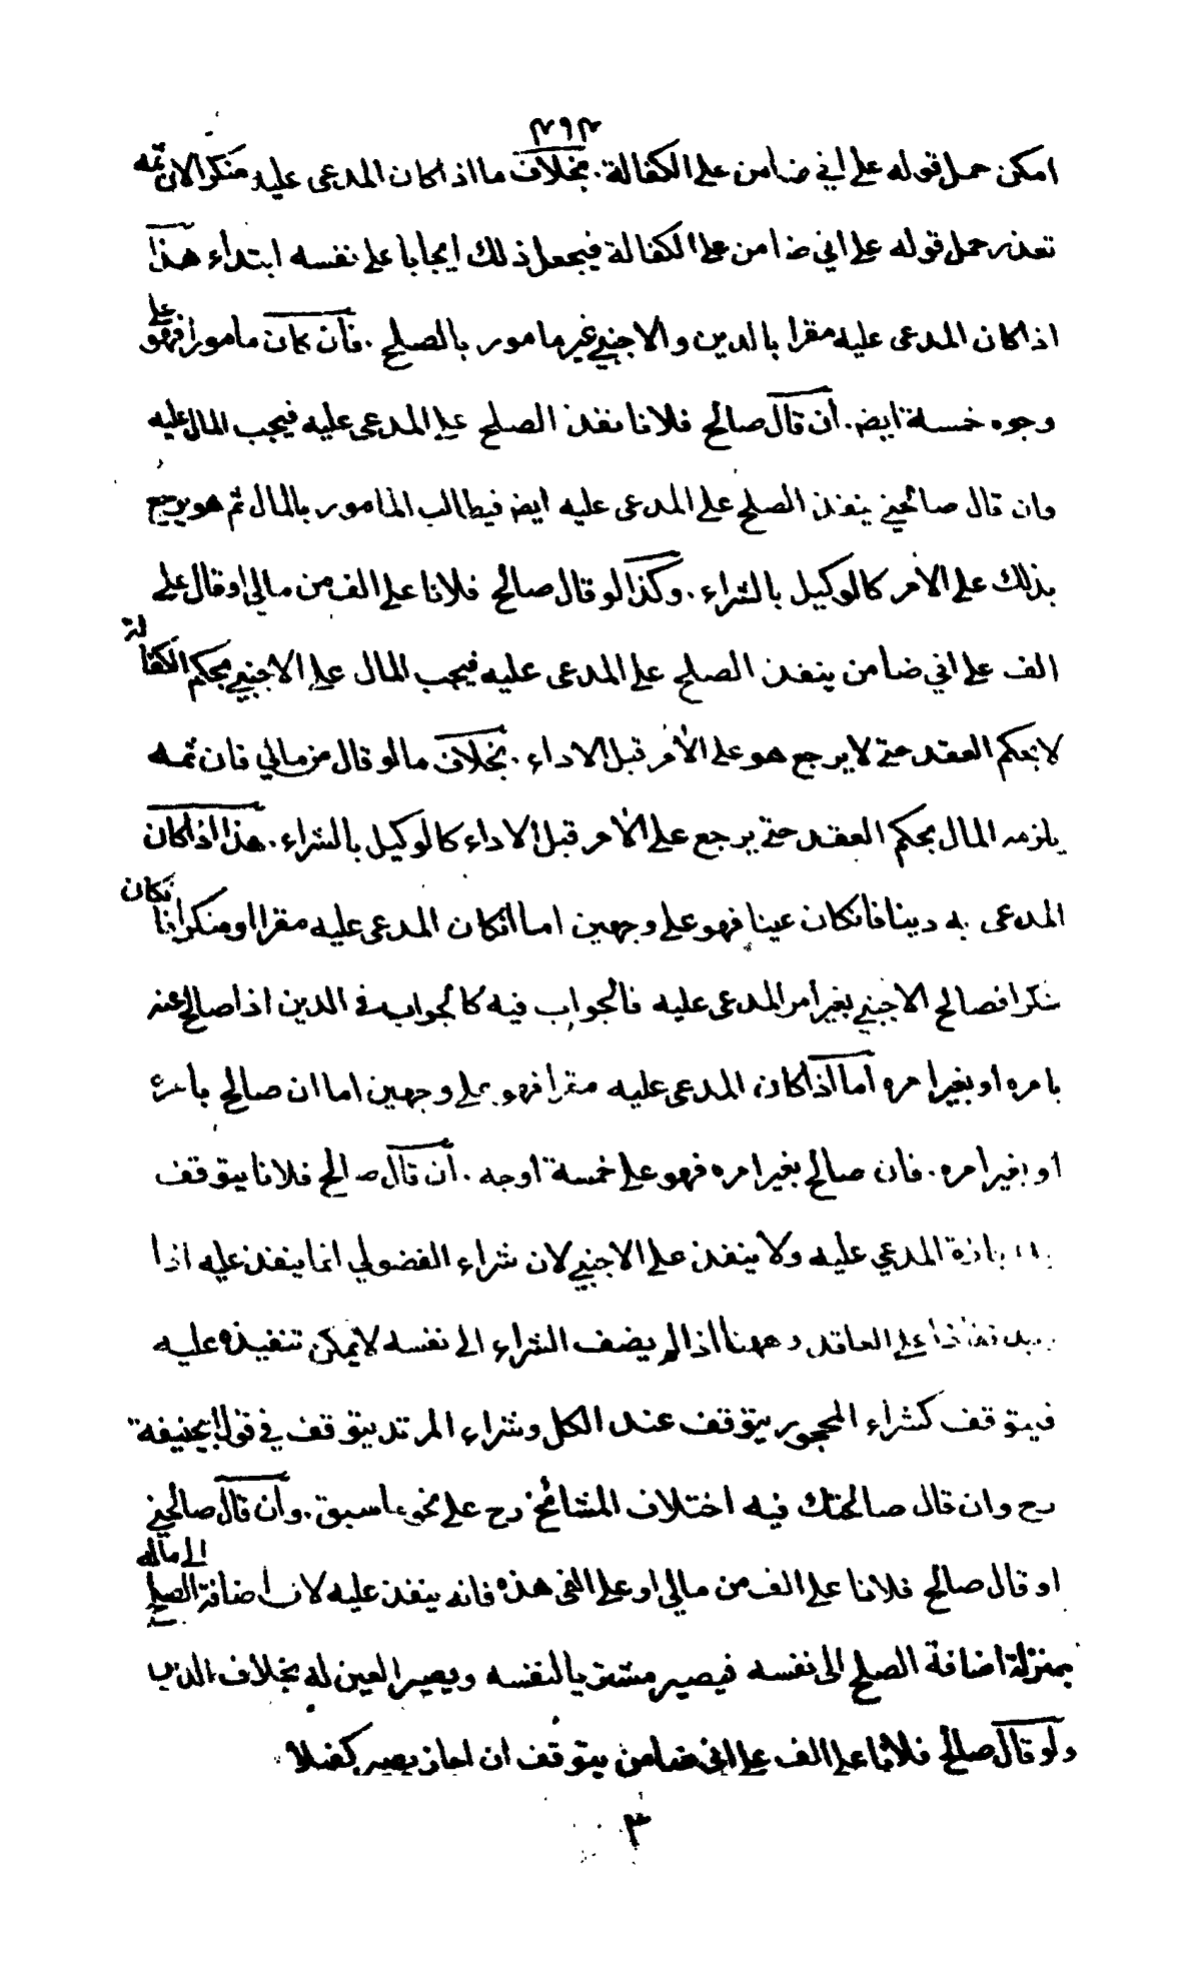 ٣٩٣
امكن حمل قوله على اني ضامن على الكفالة . بخلاف ما اذا كان المدعى عليه منكرا لان ثمه
تعذر حمل قوله على اني ضامن على الكفالة فيجعل ذلك ايجابا على نفسه ابتداء هذا
اذا كان المدعى عليه مقرا بالدين والاجنبي غير مامور بالصلح . فان كان مامورا فهو على
وجوه خمسة ايض . ان قال صالح فلانا نفذ الصلح على المدعى عليه فيجب المال عليه
وان قال صالحني ينفذ الصلح على المدعى عليه ايض فيطالب المامور بالمال ثم هو يرجع
بذلك على الأمر كالوكيل بالشراء . وكذا لو قال صالح فلانا على الف من مالي او قال على
الف على اني ضامن ينفذ الصلح على المدعى عليه فيجب المال على الاجنبي بحكم الكفالة
لا بحكم العقد حتى لا يرجع هو على الأمر قبل الاداء . بخلاف ما لو قال من مالي فان ثمه
يلزمه المال بحكم العقد حتى يرجع على الأمر قبل الاداء كالوكيل بالشراء . هذا اذا كان
المدعى به دينا فانكان عينا فهو على وجهين اما انكان المدعى عليه مقرا او منكرا فانكان
منكرا فصالح الاجنبي بغير أمر المدعى عليه فالجواب فيه كالجواب في الدين اذا صالح عنه
بامره او بغير امره اما اذا كان المدعى عليه مقرا فهو على وجهين اما ان صالح بامره
او بغير امره . فان صالح بغير امره فهو على خمسة اوجه . ان قال صالح فلانا يتوقف
المدعي عليه ولا ينفذ على الاجنبي لان شراء الفضولي انما ينفذ عليه اذا
نفاذا على العاقد وههنا اذا لم يضف الشراء الى نفسه لا يمكن تنفيذه عليه
فيتوقف كشراء المحجور يتوقف عند الكل وشراء المرتد يتوقف في قول ابيحنيفة
رح وان قال صالحتك فيه اختلاف المشائخ رح على نحو ما سبق . وان قال صالحني
او قال صالح فلانا على الف من مالي او على الفى هذه فانه ينفذ عليه لان اضافة الصلح الى ماله
بمنزلة اضافة الصلح الى نفسه فيصير مشتريا لنفسه ويصير العين له بخلاف الدين
ولو قال صالح فلانا على الف على اني ضامن يتوقف ان اجاز يصير كفيلا
٣